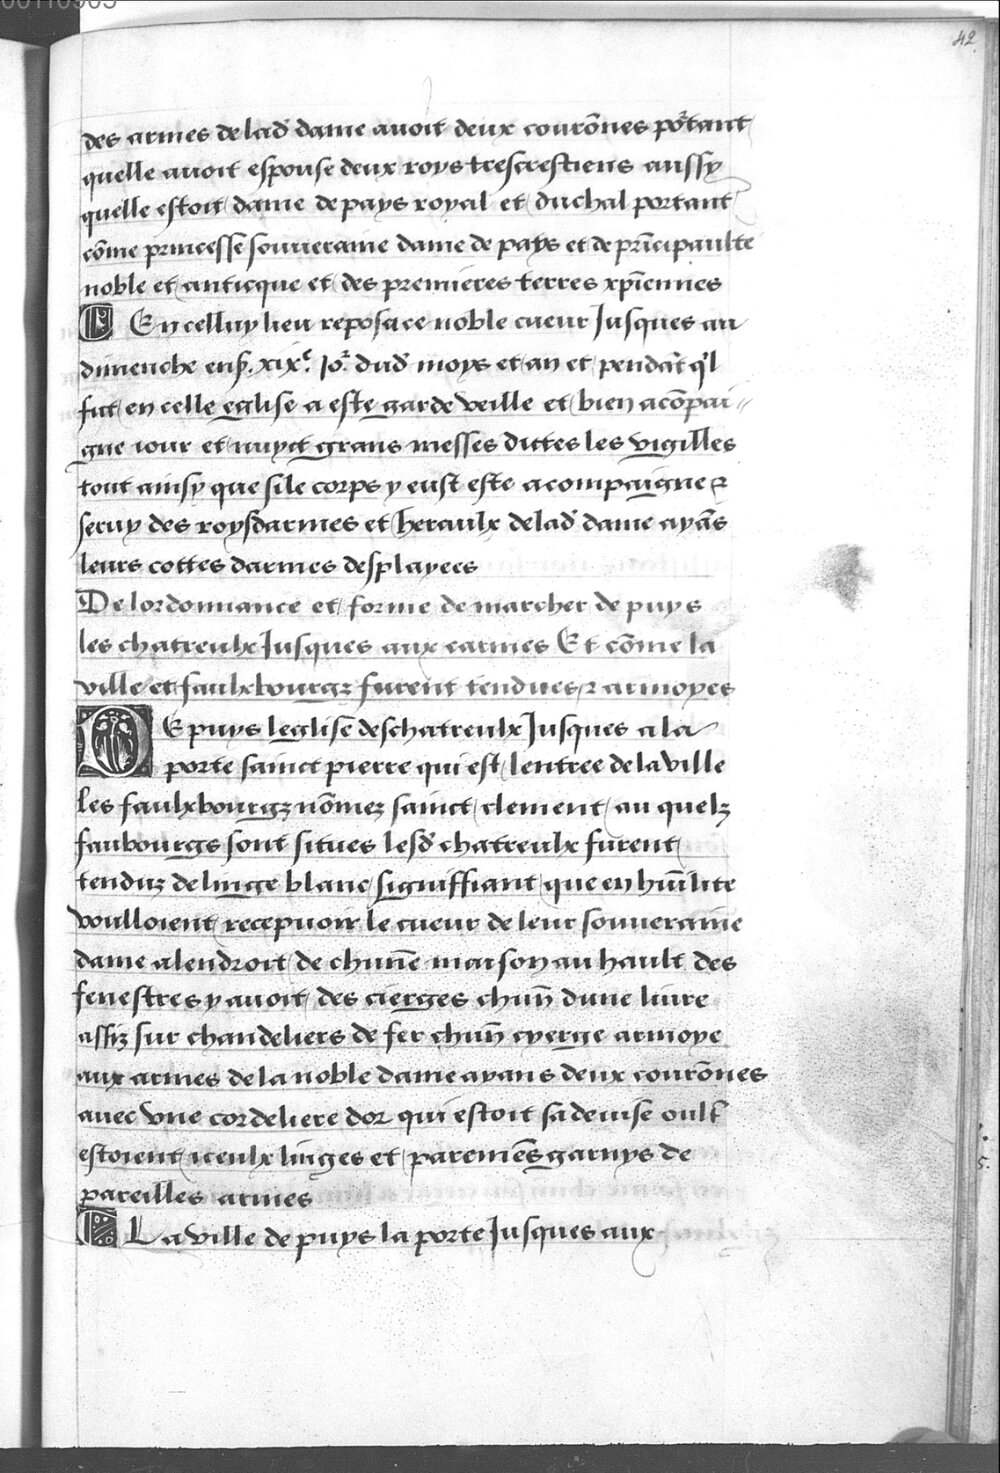 00110965
42
des armes de lad dame auoit deux courõnes põtant
quelle auoit espouse deux roys trescrestiens aussy
quelle estoit dame de pays royal et duchal portant
cõme princesse souueraine dame de pays et de prĩcipaulte
noble et anticque et des premieres terres xpiennes
En celluy lieu reposa ce noble cueur Jusques au
dimenche ens. xixe. Jor dud moys et an et pendãt ql
fut en celle eglise a este garde veille et bien acõpai
gne iour et nuyct grans messes dictes les vigilles
tout ainsy que si le corps y eust este acompaigne 2
seruy des roys darmes et heraulx de lad dame ayãs
leurs cottes darmes desplayees
De lordonnance et forme de marcher de puys
les chatreulx Jusques aux carmes Et cõme la
ville et faulxbourgz furent tendues 2 armoyes
DE puys leglise des chatreulx Jusques a la
porte sainct pierre qui est lentree de la ville
les faulxbourgz nõmez sainct clement au quelz
faubourgs sont situes lesd chatreulx furent
tenduz de linge blanc signiffiant que en hũilite
voulloient recepuoir le cueur de leur souueraine
dame a lendroit de chũne maison au hault des
fenestres y auoit des cierges chũn dune liure
assiz sur chandeliers de fer chũn cyerge armoye
aux armes de la noble dame ayans deux courõnes
auec vne cordeliere dor qui estoit sa deuise oult
estoient iceulx linges et paremẽs garnys de
pareilles armes
La ville de puys la porte Jusques aux